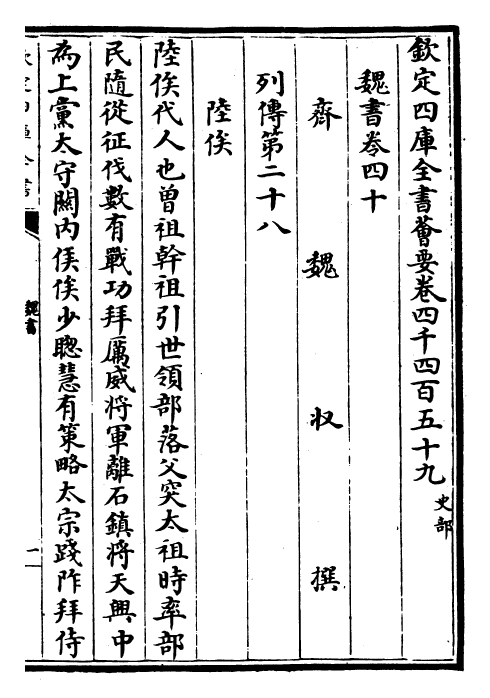 欽定四庫全書薈要卷四千四百五十九 史部
魏書卷四十
齊 魏 收 撰
列傳第二十八
陸俟
陸俟代人也曽祖幹祖引世領部落父突太祖時率部
民隨從征伐數有戰功拜厲威將軍離石鎮將天興中
為上黨太守關内侯俟少聰慧有策略太宗踐阼拜侍
魏書
一